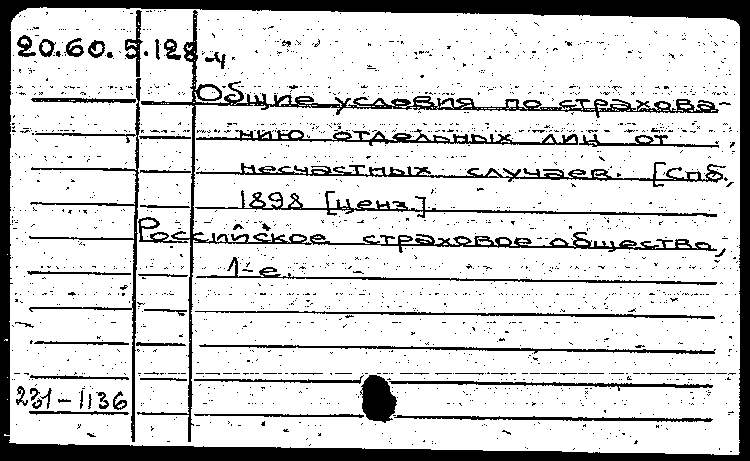 20.60.5.128-4.
Общие условия по страхова-
нию отдельных лиц от
несчастных случаев. [Спб,
1898 [ценз.].
Российское страховое общество,
1-е.
231-1136